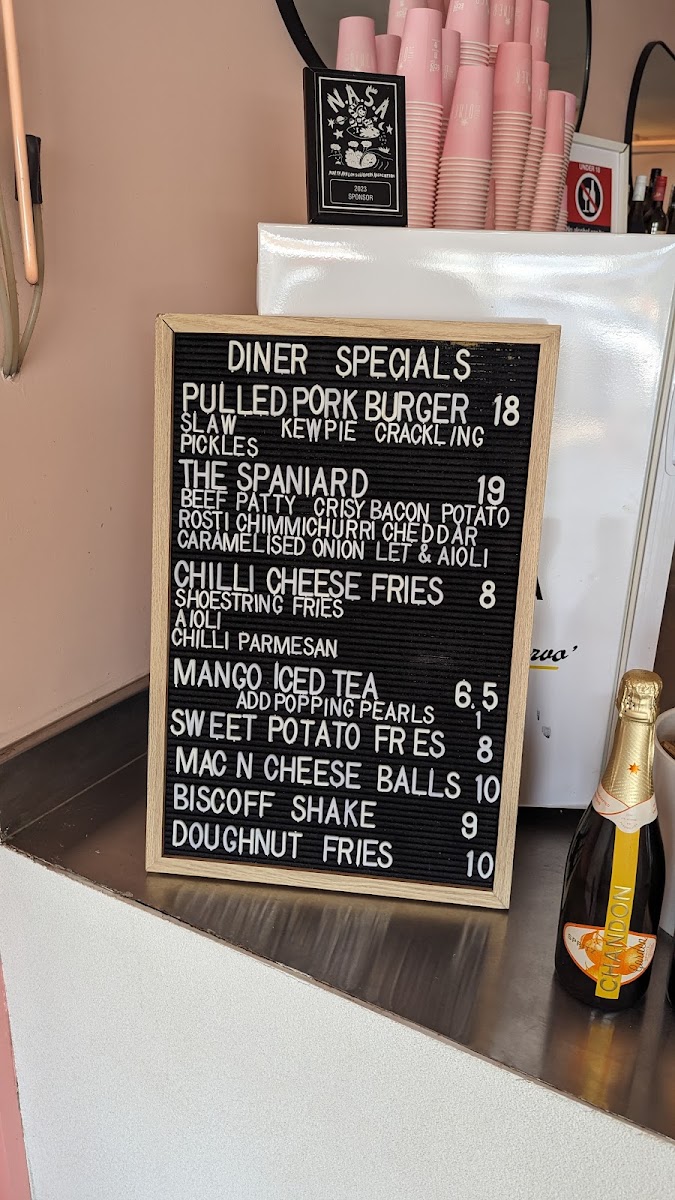 N.A.S.A
2023
SPONSOR
UNDER 18
DINER SPECIALS
PULLED PORK BURGER 18
SLAW KEWPIE CRACKLING
PICKLES
THE SPANIARD 19
BEEF PATTY CRISY BACON POTATO
ROSTI CHIMMICHURRI CHEDDAR
CARAMELISED ONION LET & AIOLI
CHILLI CHEESE FRIES 8
SHOESTRING FRIES
AIOLI
CHILLI PARMESAN
MANGO ICED TEA 6.5
ADD POPPING PEARLS 1
SWEET POTATO FR ES 8
MAC N CHEESE BALLS 10
BISCOFF SHAKE 9
DOUGHNUT FRIES 10
CHANDON